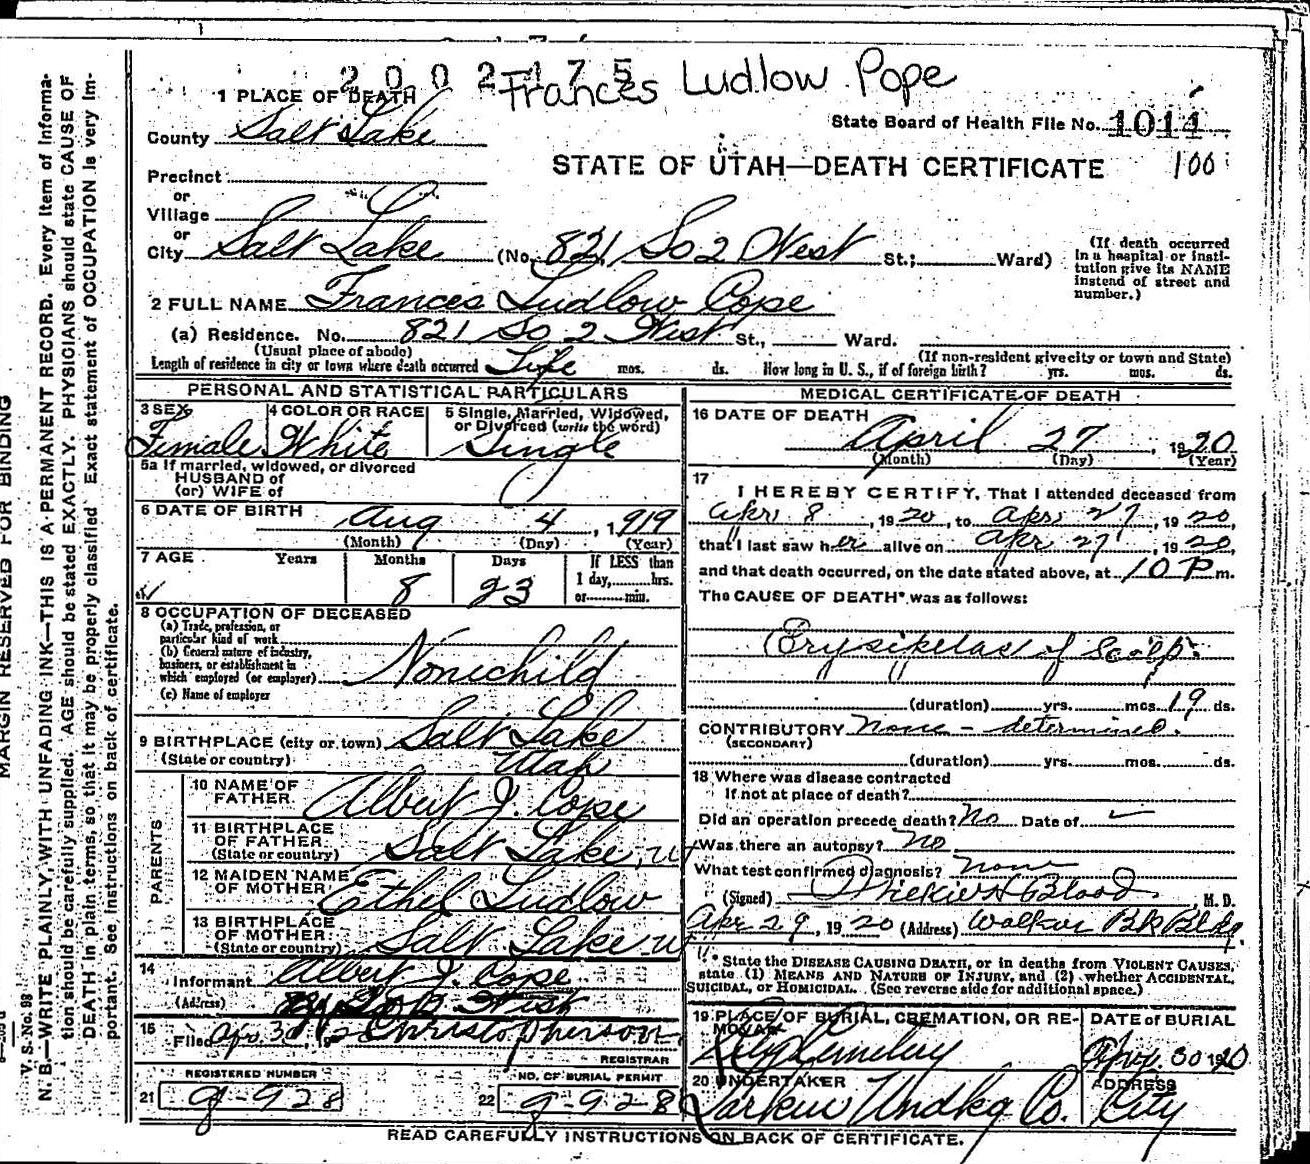 2002175
Frances Ludlow Pope
1 PLACE OF DEATH
County Salt Lake
State Board of Health File No. 1014
STATE OF UTAH—DEATH CERTIFICATE 100
Precinct
or
Village
or
City Salt Lake (No. 821 So 2 West St.; Ward)
(If death occurred in a hospital or institution give its NAME instead of street and number.)
2 FULL NAME Frances Ludlow Cope
(a) Residence. No. 821 So 2 West St., Ward.
(Usual place of abode) (If non-resident give city or town and State)
Length of residence in city or town where death occurred Life mos. ds. How long in U. S., if of foreign birth? yrs. mos. ds.
PERSONAL AND STATISTICAL PARTICULARS
3 SEX Female
4 COLOR OR RACE White
5 Single, Married, Widowed, or Divorced (write the word) Single
5a If married, widowed, or divorced
HUSBAND of
(or) WIFE of
6 DATE OF BIRTH Aug 4, 1919
(Month) (Day) (Year)
7 AGE Years Months Days If LESS than
8 23 1 day, hrs.
or min.
8 OCCUPATION OF DECEASED
(a) Trade, profession, or
particular kind of work
(b) General nature of industry,
business, or establishment in
which employed (or employer) None child
(c) Name of employer
9 BIRTHPLACE (city or town) Salt Lake
(State or country) Utah
PARENTS
10 NAME OF FATHER Albert J. Cope
11 BIRTHPLACE OF FATHER (State or country) Salt Lake, U
12 MAIDEN NAME OF MOTHER Ethel Ludlow
13 BIRTHPLACE OF MOTHER (State or country) Salt Lake U
14
Informant Albert J. Cope
(Address) 821 So 2 West
15
Filed Apr 30, 19 Christopherson
REGISTRAR
REGISTERED NUMBER
21 g-928
NO. OF BURIAL PERMIT
22 g-928
MEDICAL CERTIFICATE OF DEATH
16 DATE OF DEATH
April 27, 1920
(Month) (Day) (Year)
17
I HEREBY CERTIFY, That I attended deceased from
Apr 8, 1920, to Apr 27, 1920,
that I last saw her alive on Apr 27, 1920,
and that death occurred, on the date stated above, at 10 P m.
The CAUSE OF DEATH* was as follows:
Erysipelas of Scalp.
(duration) yrs. mos. 19 ds.
CONTRIBUTORY None - determined.
(SECONDARY)
(duration) yrs. mos. ds.
18 Where was disease contracted
If not at place of death?
Did an operation precede death? No Date of
Was there an autopsy? No
What test confirmed diagnosis? None
(Signed) Blood, M. D.
Apr 29, 1920 (Address) Walker Bk Bldg.
* State the DISEASE CAUSING DEATH, or in deaths from VIOLENT CAUSES,
state (1) MEANS AND NATURE OF INJURY, and (2) whether ACCIDENTAL,
SUICIDAL, or HOMICIDAL. (See reverse side for additional space.)
19 PLACE OF BURIAL, CREMATION, OR REMOVAL
City Cemetery
DATE of BURIAL
Apr. 30 1920
20 UNDERTAKER
Larkin Undkg Co.
ADDRESS
City
READ CAREFULLY INSTRUCTIONS ON BACK OF CERTIFICATE.
MARGIN RESERVED FOR BINDING
V. S. No. 98
N. B.—WRITE PLAINLY, WITH UNFADING INK—THIS IS A PERMANENT RECORD. Every item of information should be carefully supplied. AGE should be stated EXACTLY. PHYSICIANS should state CAUSE OF DEATH in plain terms, so that it may be properly classified. Exact statement of OCCUPATION is very important. See instructions on back of certificate.